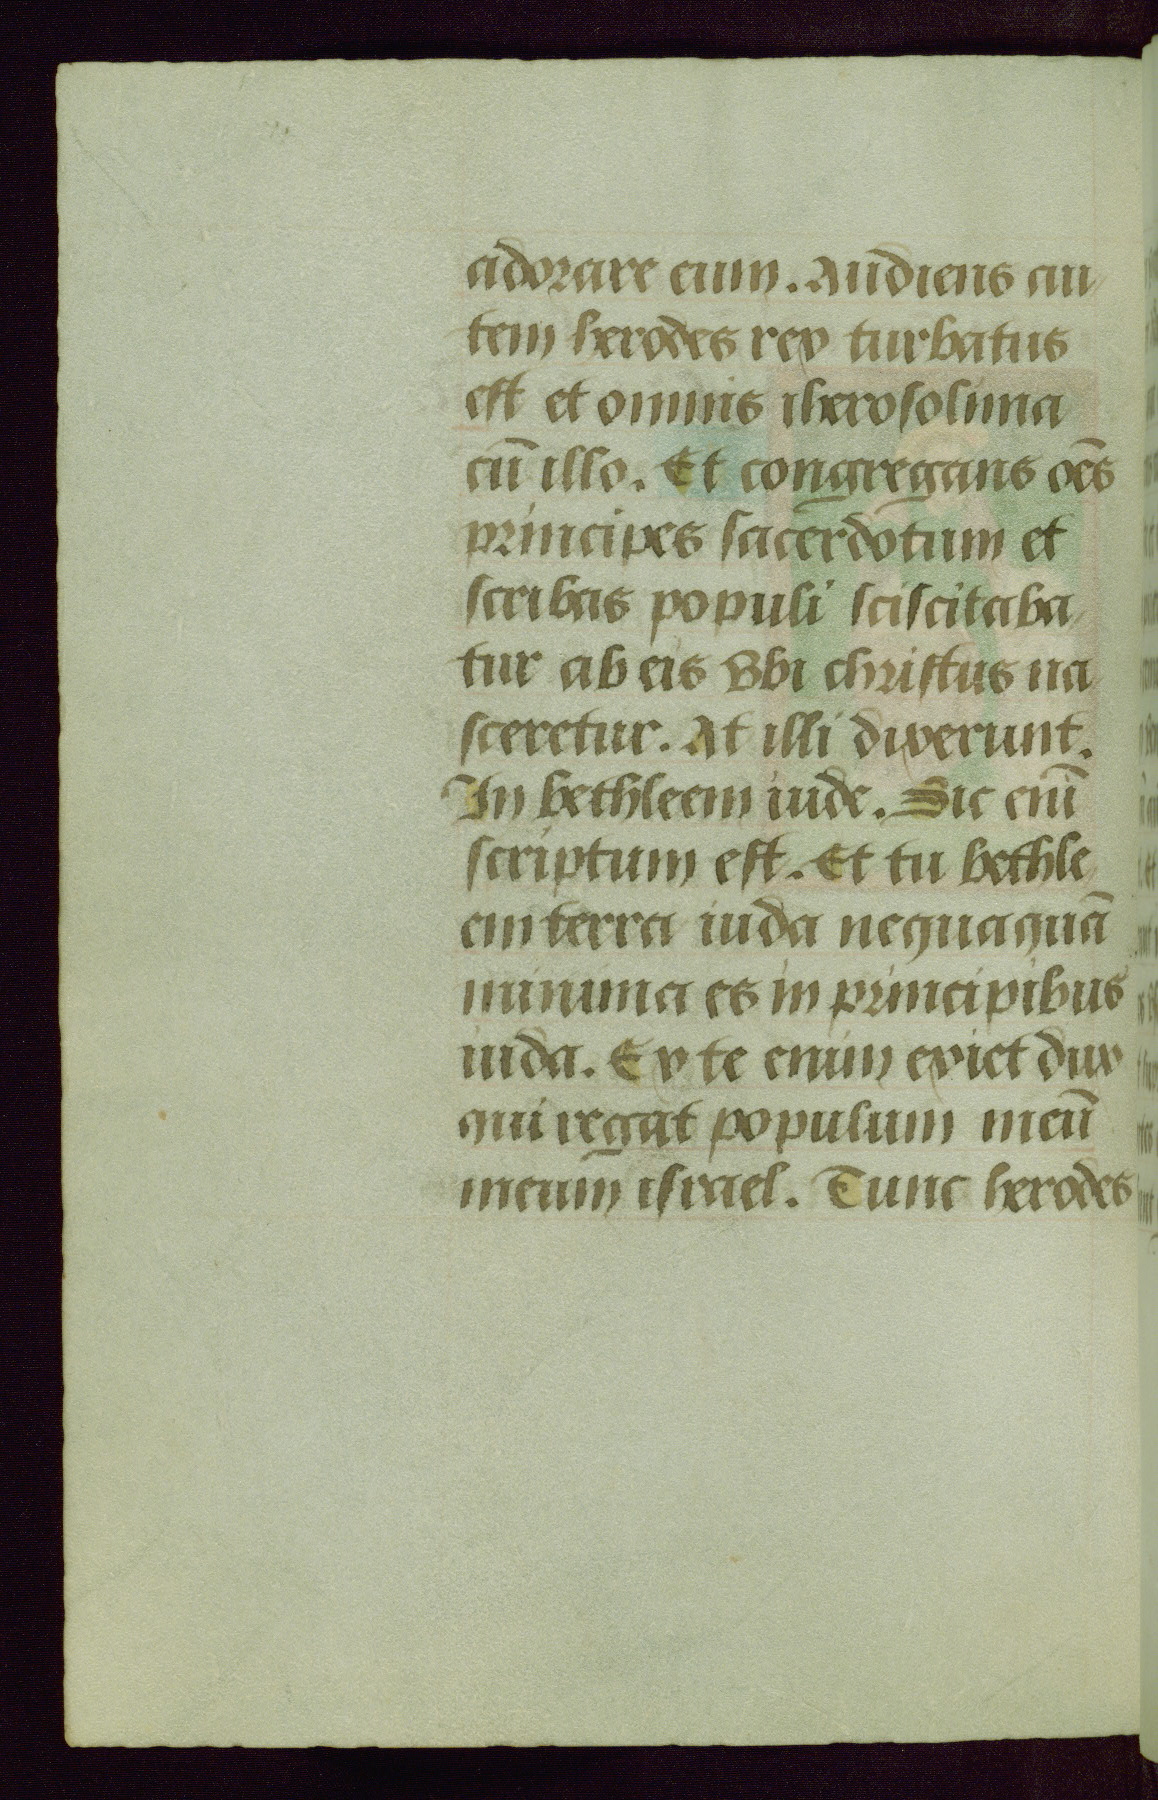 adorare eum. Audiens au
tem herodes rex turbatus
est et omnis iherosolima
cū illo. Et congregans oēs
principes sacerdotum et
scribas populi sciscitaba
tur ab eis Vbi christus na
sceretur. At illi dixerunt.
In bethleem iude. Sic enī
scriptum est. Et tu bethle
em terra iuda nequaquā
minima es in principibus
iuda. Ex te enim exiet dux
qui regat populum meū
meum israel. Tunc herodes